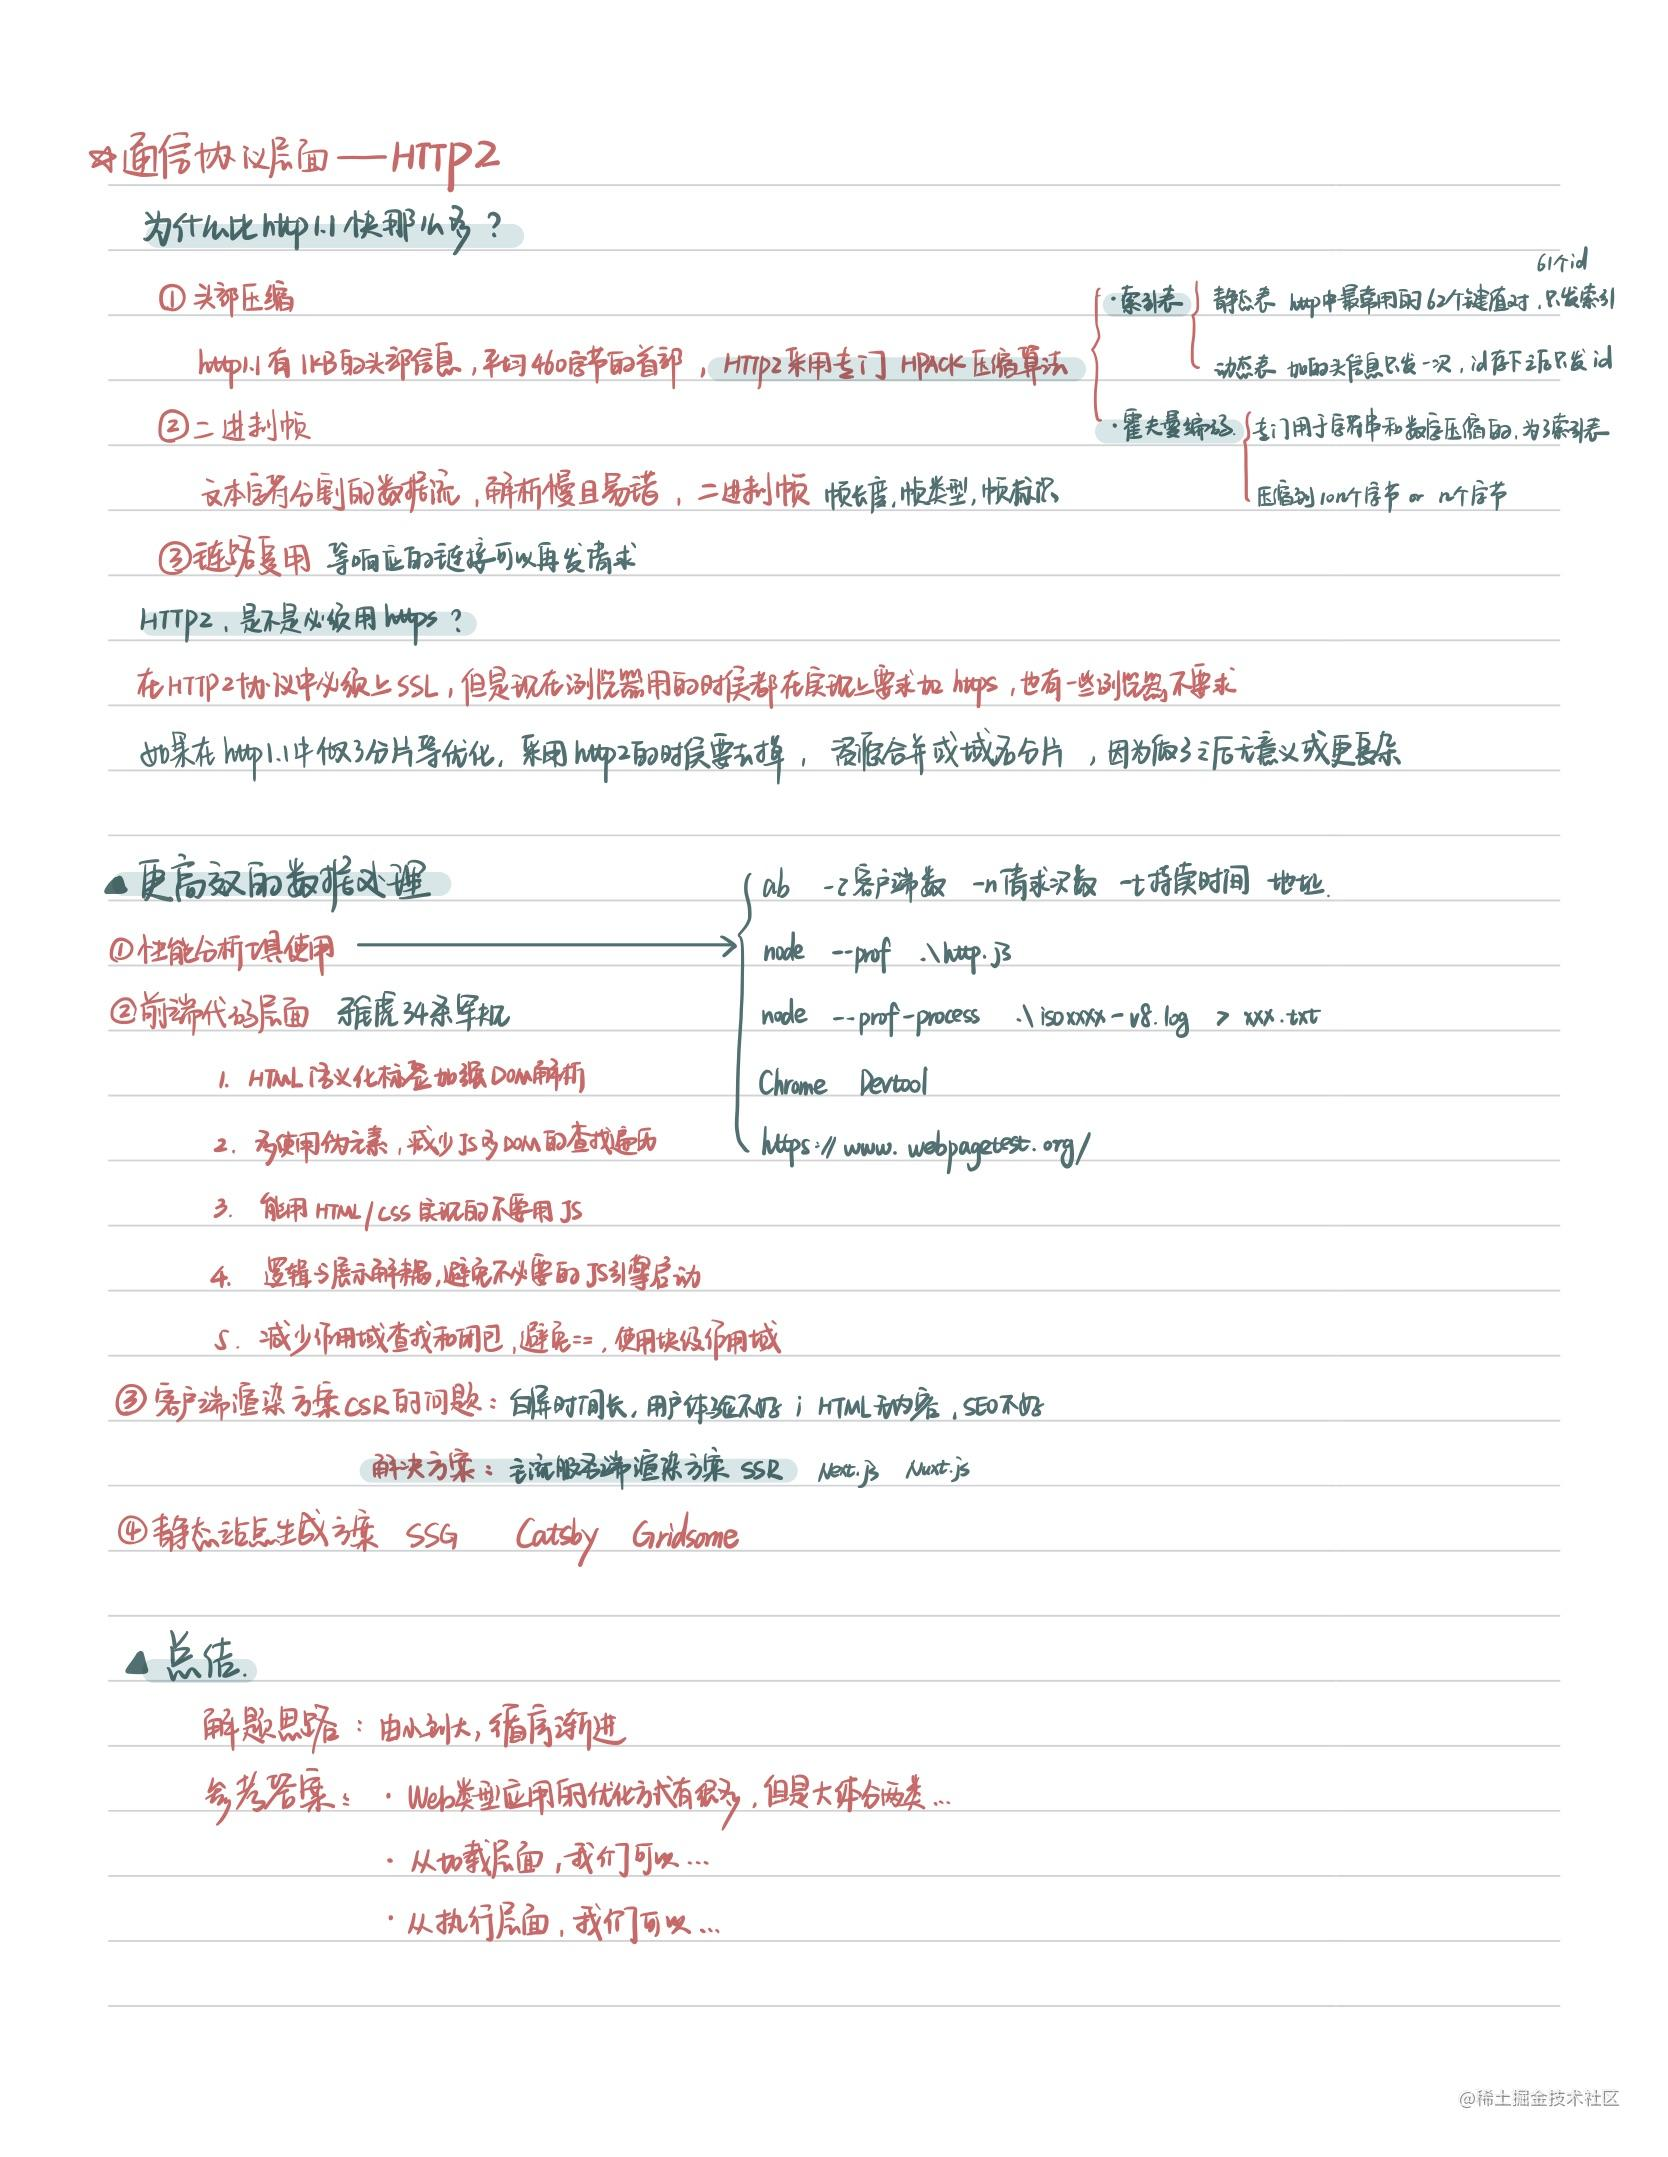 ☆通信协议层面——HTTP2
为什么比http1.1快那么多？
61个id
① 头部压缩
·索引表 静态表 http中最常用的62个键值对，只发索引
http1.1有1KB的头部信息，平均460字节的首部，HTTP2采用专门HPACK压缩算法
动态表 加的头信息只发一次，id存下之后只发id
② 二进制帧
·霍夫曼编码. 专门用于字符串和数字压缩的，为了索引表
文本字符分割的数据流，解析慢且易错，二进制帧 帧长度，帧类型，帧标识
压缩到10n个字节 or n个字节
③链路复用 等响应的链接可以再发请求
HTTP2，是不是必须用https？
在HTTP2协议中必须上SSL，但是现在浏览器用的时候都在实现上要求加https，也有一些浏览器不要求
如果在http1.1中做了分片等优化，采用http2的时候要去掉，资源合并或域名分片，因为做了之后无意义或更复杂
▲ 更高效的数据处理
ab -c客户端数 -n请求次数 -t持续时间 地址.
①性能分析工具使用
node --prof .\http.js
②前端代码层面 雅虎34条军规
node --prof-process .\isoxxxx-v8.log > xxx.txt
1. HTML语义化标签加强DOM解析
Chrome Devtool
2. 多使用伪元素，减少JS多DOM的查找遍历
https://www.webpagetest.org/
3. 能用HTML/CSS实现的不要用JS
4. 逻辑与展示解耦，避免不必要的JS引擎启动
5. 减少作用域查找和闭包，避免==，使用块级作用域
③ 客户端渲染方案CSR的问题：白屏时间长，用户体验不好；HTML无内容，SEO不好
解决方案：主流服务端渲染方案 SSR Next.js Nuxt.js
④静态站点生成方案 SSG Gatsby Gridsome
▲ 总结.
解题思路：由小到大，循序渐进
参考答案：·Web类型应用的优化方式有很多，但是大体分两类...
·从加载层面，我们可以...
·从执行层面，我们可以...
@稀土掘金技术社区